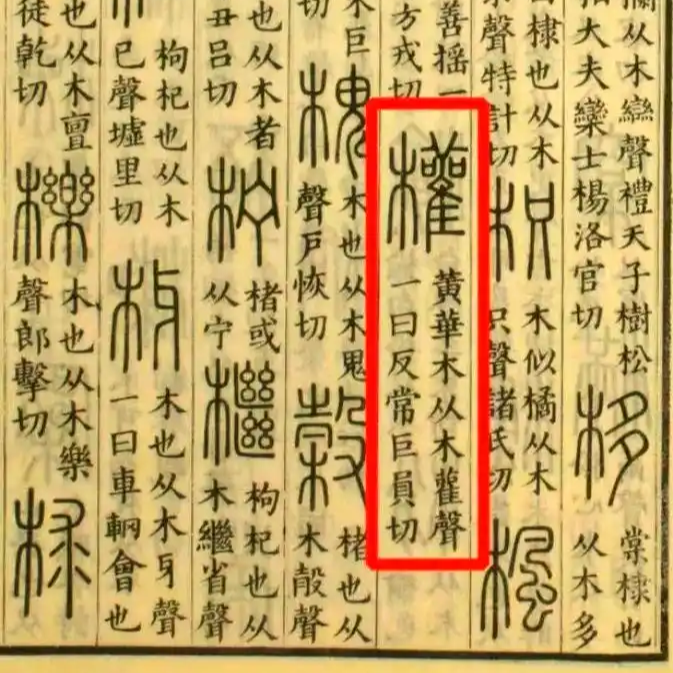 欄从木䜌聲禮天子樹松
柏大夫欒士楊洛官切
栘
棠棣也
从木多
棣也从木
聲特計切
枳
木似橘从木
只聲諸氏切
楓
善搖一
方戎切
權
黃華木从木雚聲
一曰反常巨員切
木巨
切
槐
木也从木鬼
聲戶恢切
榖
楮也从
木㱿聲
也从木者
丑呂切
柠
楮或
从宁
檵
枸杞也从
木繼省聲
枸杞也从木
已聲墟里切
枒
木也从木牙聲
一曰車輞會也
也从木亶
徒乾切
櫟
木也从木樂
聲郎擊切